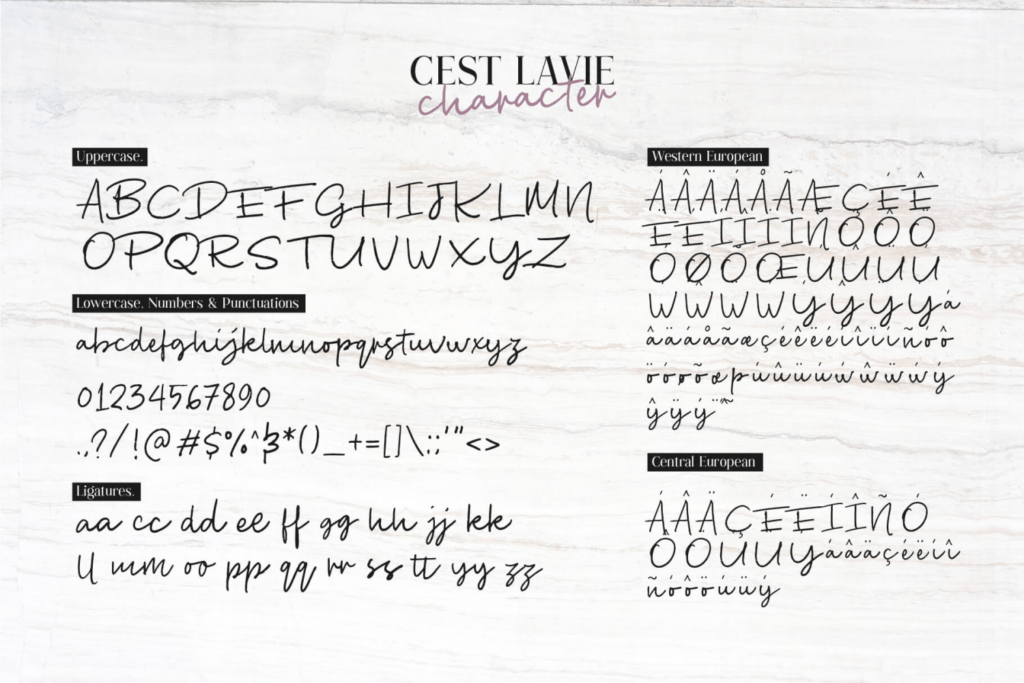 CEST LAVIE
character
Uppercase.
ABCDEFGHIJKLMN
OPQRSTUVWXYZ
Lowercase. Numbers & Punctuations
abcdefghijklmnopqrstuvwxyz
01234567890
.,?/!@#$%^&*()_+=[]\:;'"<>
Ligatures.
aa cc dd ee ff gg hh jj kk
ll mm oo pp qq rr ss tt yy zz
Western European
ÁÂÄÀÅÃÆÇÉÊ
ËÈÍÎÏÌÑÓÔÖ
ÒØÕŒÚÛÜÙ
ẂŴẄẀÝŶŸỲá
âäàåãæçéêëèíîïìñóô
öòøõœþúûüùẃŵẅẁý
ŷÿỳ¨˜
Central European
ÁÂÄÇÉËÍÎŃÓ
ÔÖÚÜÝáâäçéëíî
ńóôöúüý